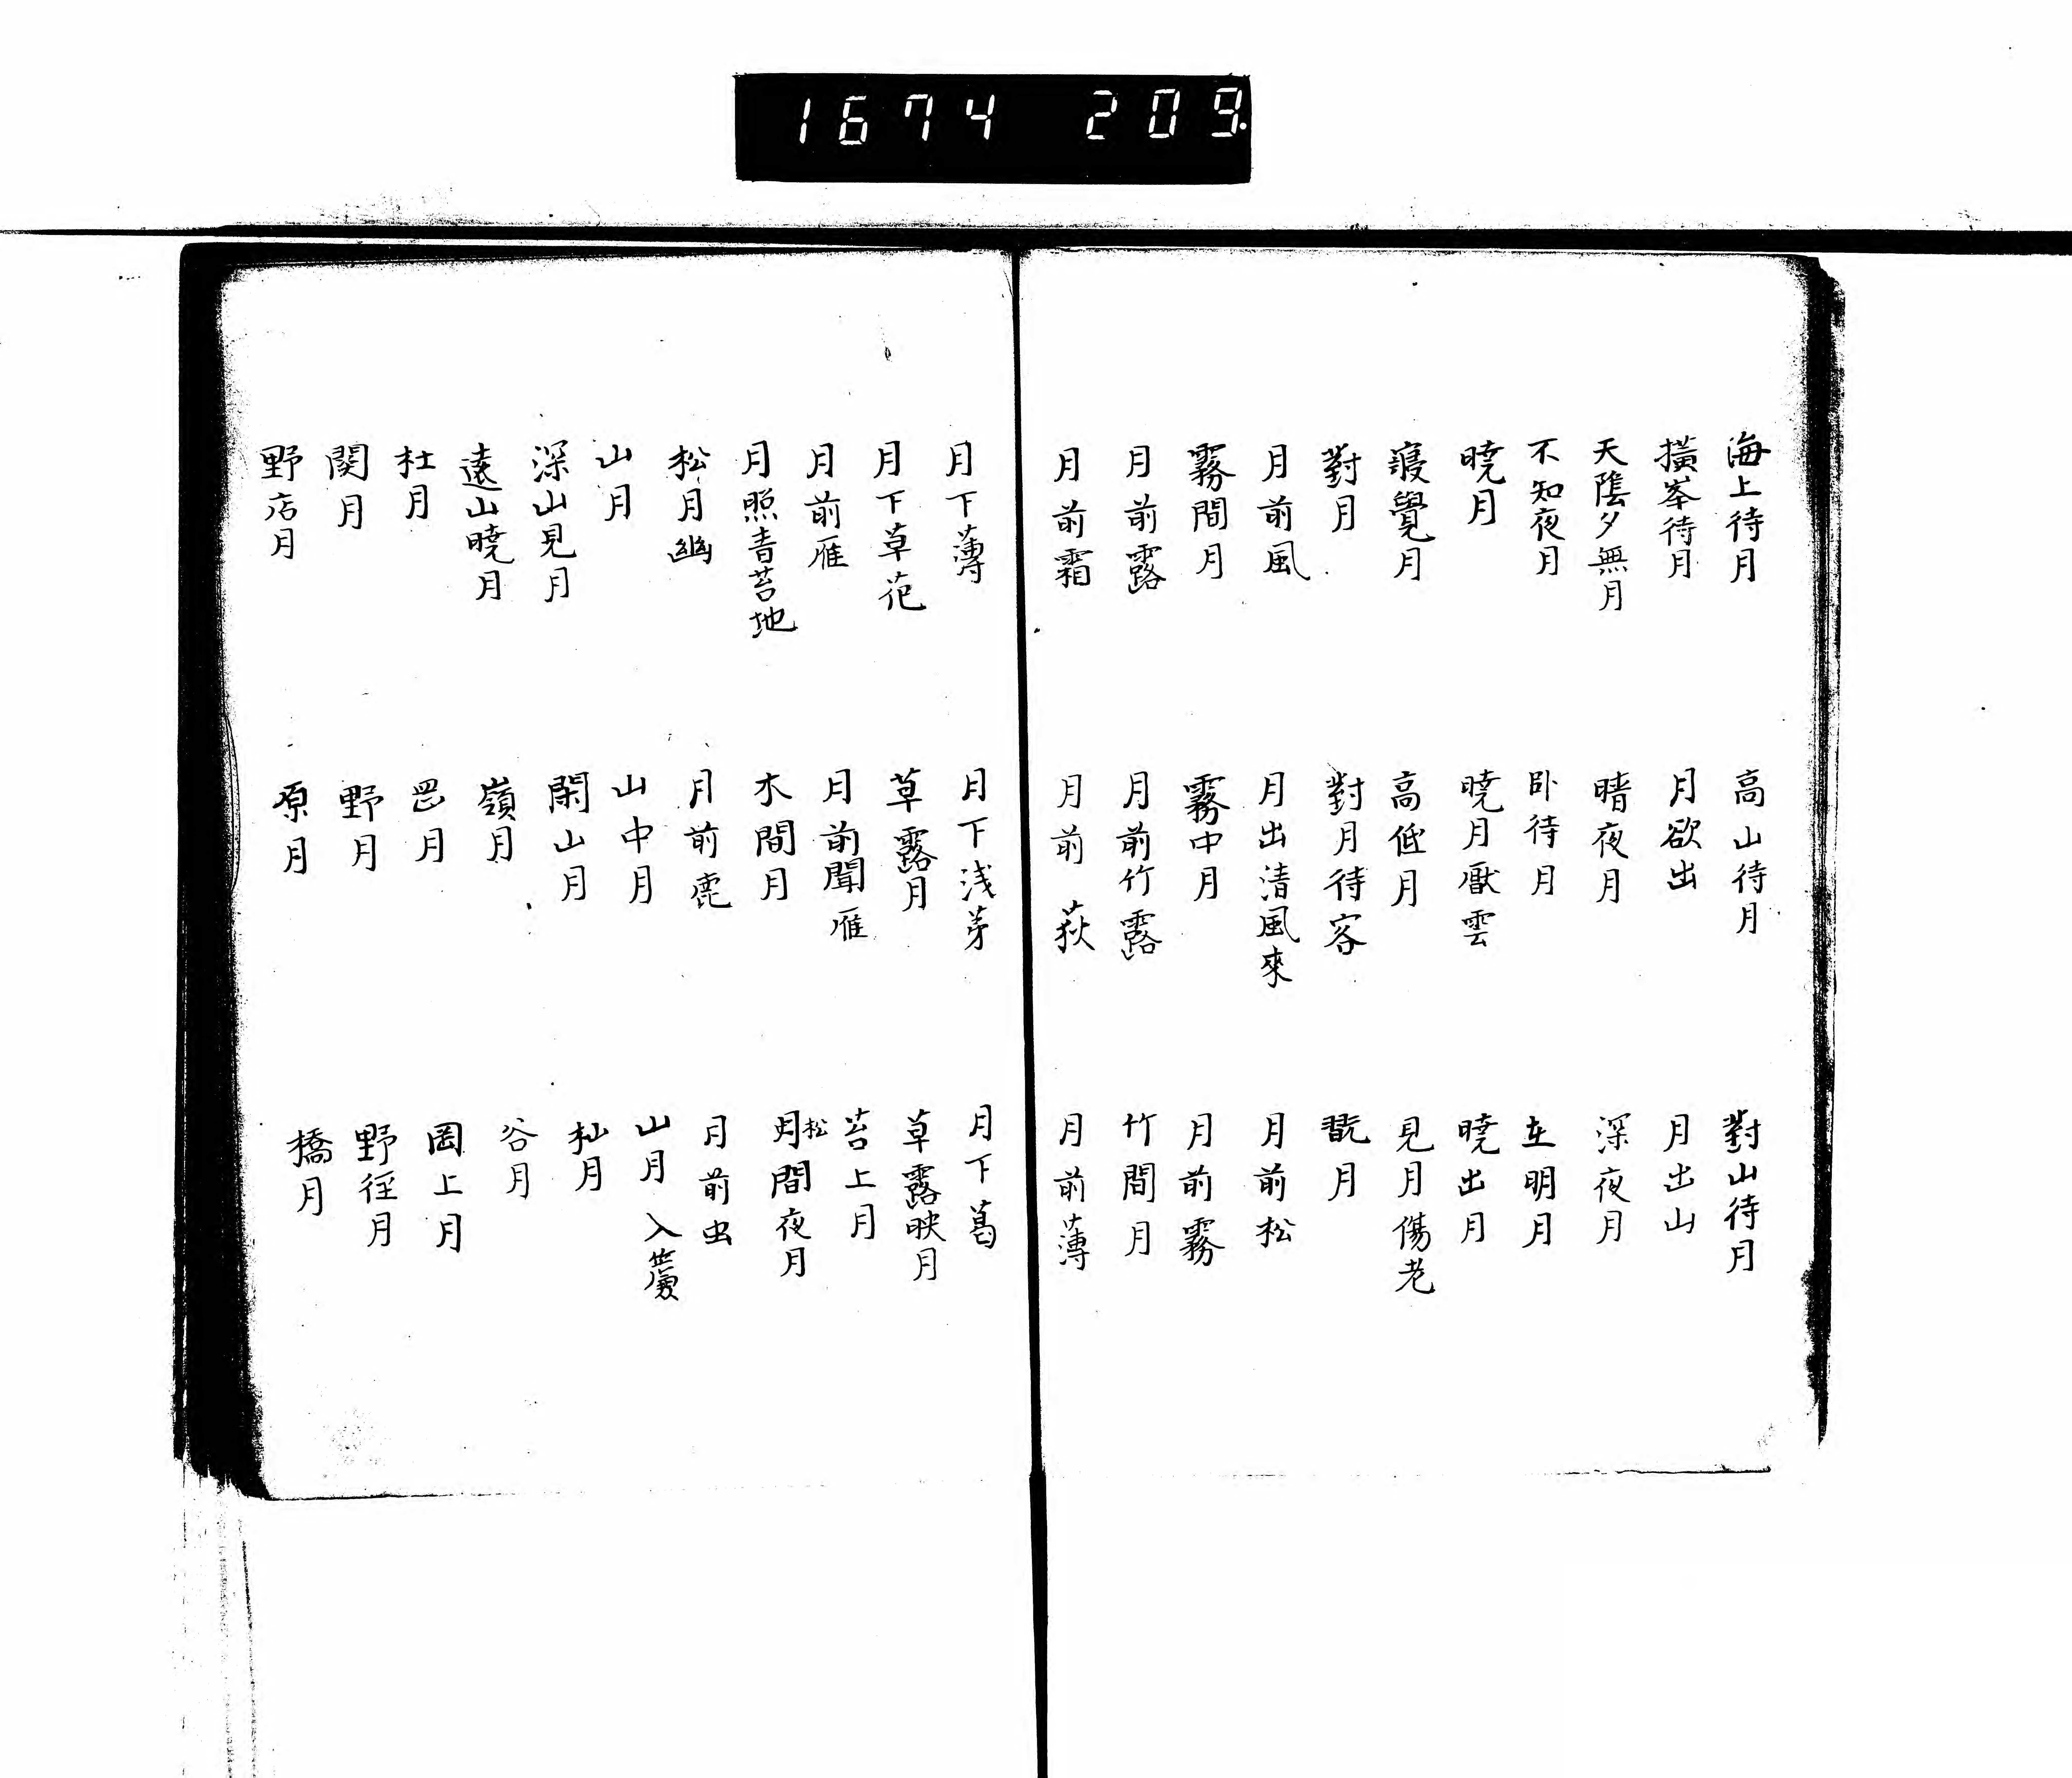 1674 209.
海上待月　高山待月　對山待月
横峯待月　月欲出　月出山
天陰夕無月　晴夜月　深夜月
不知夜月　卧待月　在明月
暁月　暁月厭雲　暁出月
寝覺月　高低月　見月傷老
對月　對月待客　翫月
月前風　月出清風來　月前松
霧間月　霧中月　月前霧
月前露　月前竹露　竹間月
月前霜　月前荻　月前薄
月下薄　月下浅茅　月下葛
月下草花　草露月　草露映月
月前雁　月前聞雁　苔上月
月照青苔地　木間月　松月間夜月
松月幽　月前鹿　月前虫
山月　山中月　山月入
深山見月　閑山月　杣月
遠山暁月　嶺月　谷月
杜月　罡月　岡上月
関月　野月　野径月
野店月　原月　橋月